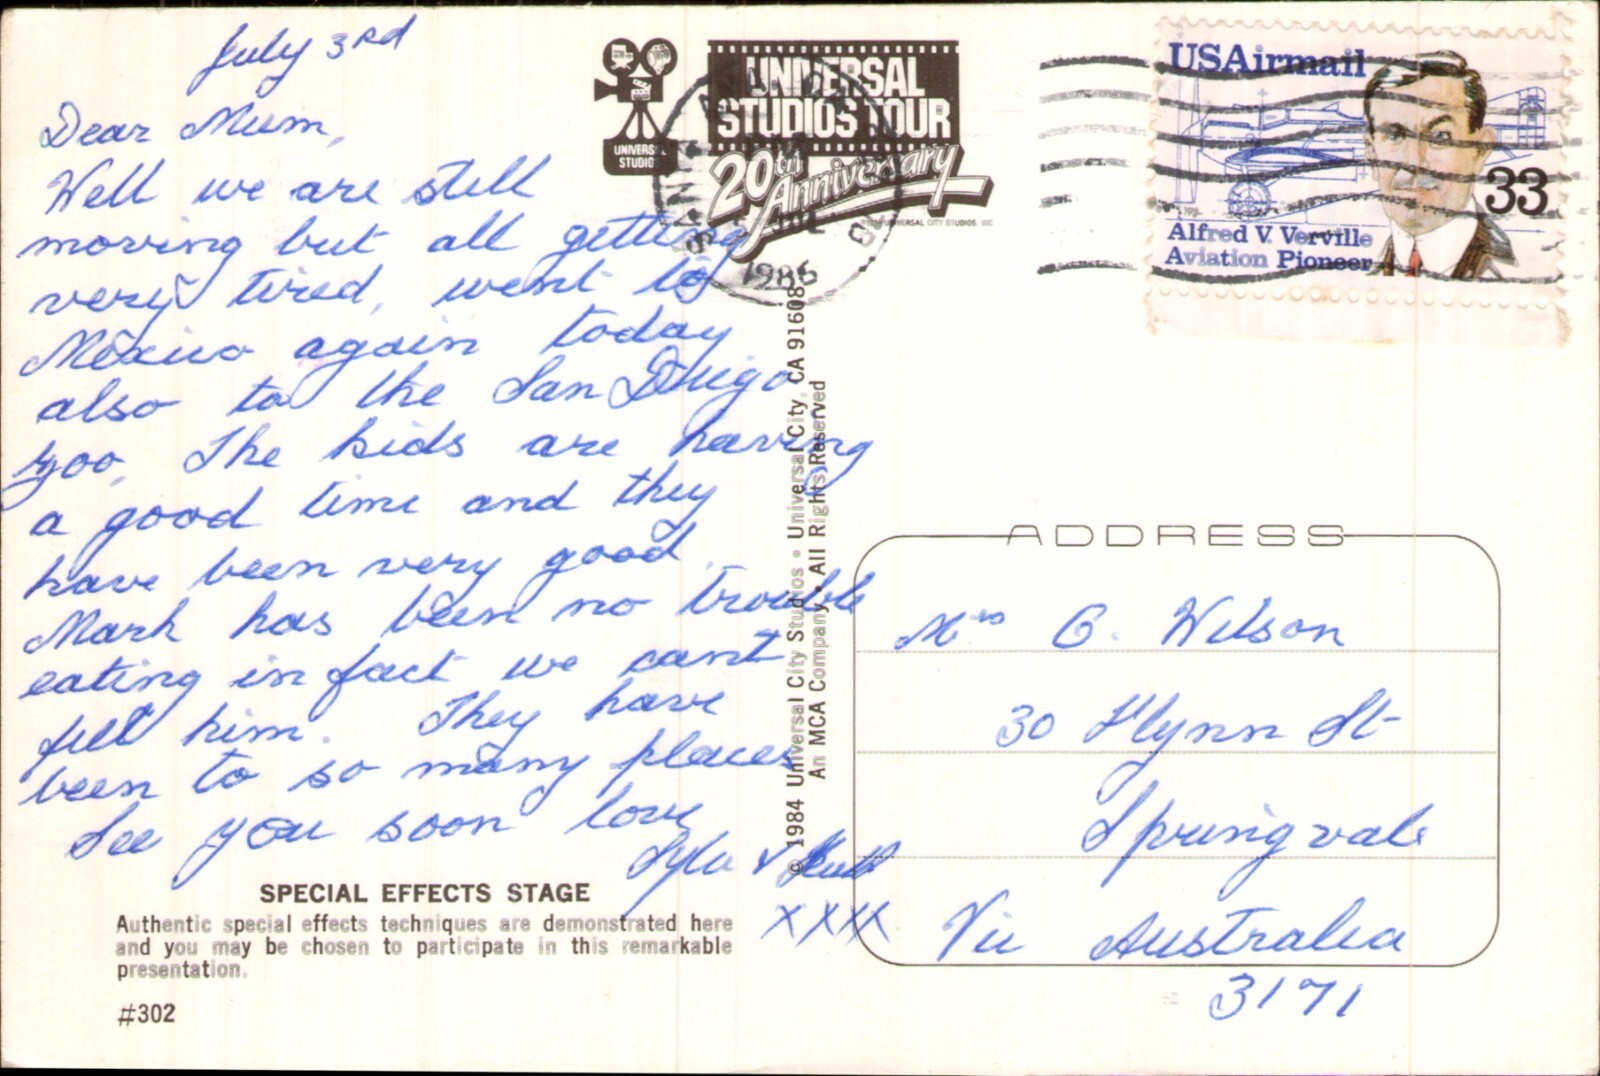 July 3rd
Dear Mum,
Well we are still
moving but all getting
very tired, went to
Mexico again today
also to the San Diego
Zoo, The kids are having
a good time and they
have been very good.
Mark has been no trouble
eating in fact we cant
fill him. They have
been to so many places
See you soon love
&
XXXX
SPECIAL EFFECTS STAGE
Authentic special effects techniques are demonstrated here
and you may be chosen to participate in this remarkable
presentation.
#302
UNIVERSAL
STUDIOS
UNIVERSAL
STUDIOS TOUR
20th
Anniversary
1986
© 1984 Universal City Studios • Universal City, CA 91608
An MCA Company • All Rights Reserved
USAirmail
33
Alfred V. Verville
Aviation Pioneer
ADDRESS
Mrs G. Wilson
30 Flynn St
Springvale
Vic Australia
3171